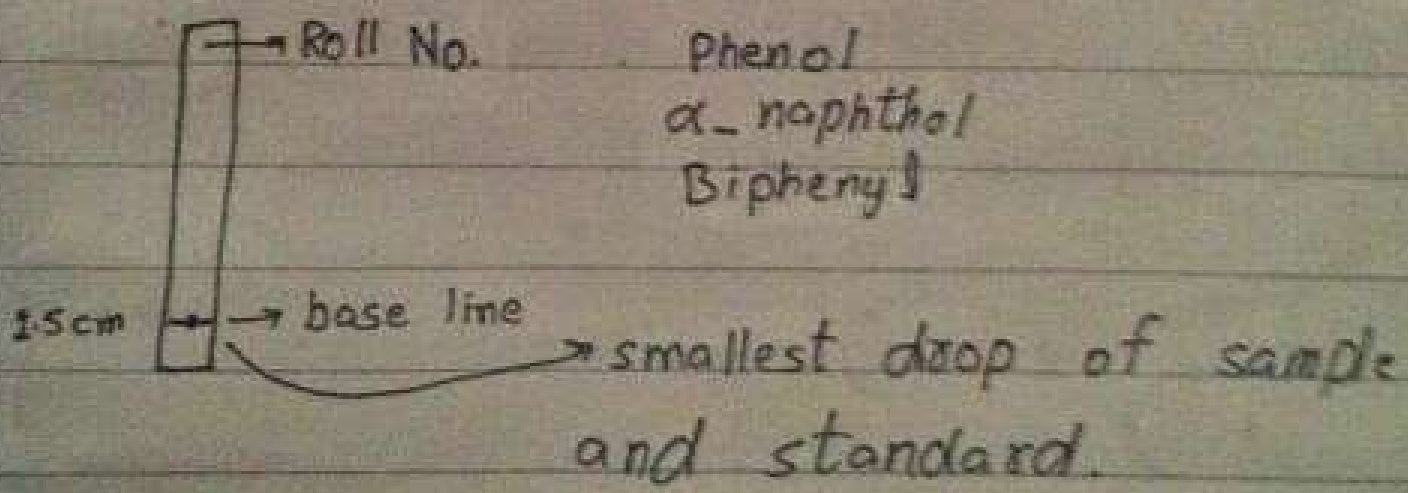 Roll No.
Phenol
α- naphthol
Biphenyl
1.5cm
base line
smallest drop of sample
and standard.